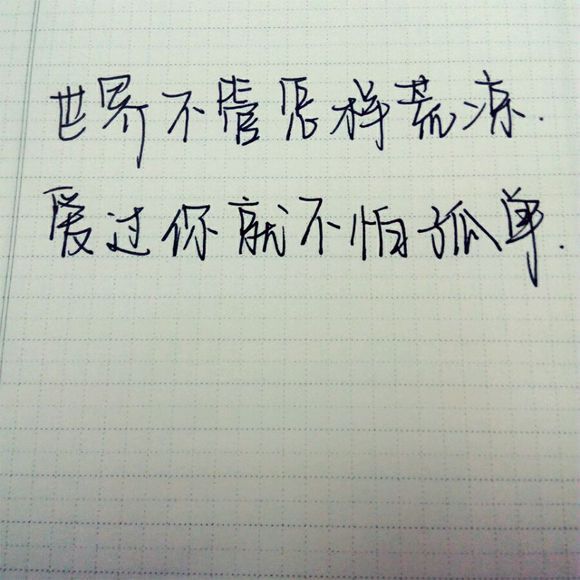 世界不管怎样荒凉.
爱过你就不怕孤单.